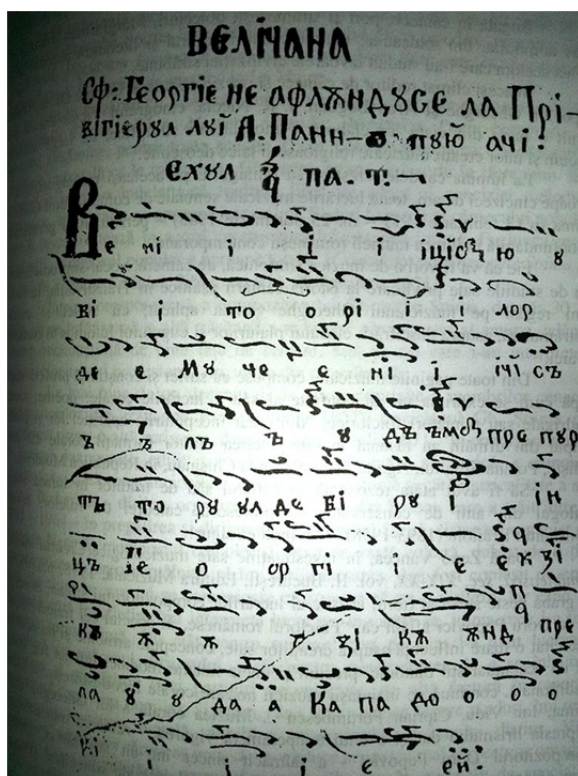 ВЕЛІЧАНА
Сф: Георгіе не афлѫндꙋсе ла Прі-
вігіерул луй А. Панн пуій ачі!
ЕХУЛ ПА.
Ве ні і і іціс ю ꙋ
ві і то о рі і лор
де е мꙋ че е ні і ічі съ
ъ ъ лъ ъ ꙋ дъ ъмоъ пре пур
тъ то рꙋ ꙋл де бі рꙋ ін
ць іе о ор гі і е е кзі
кѫ ѫ ѫ зі кѫ ѫнд пре
ла ꙋ ꙋ да а Ка па до о о о
кі і і і е ей: